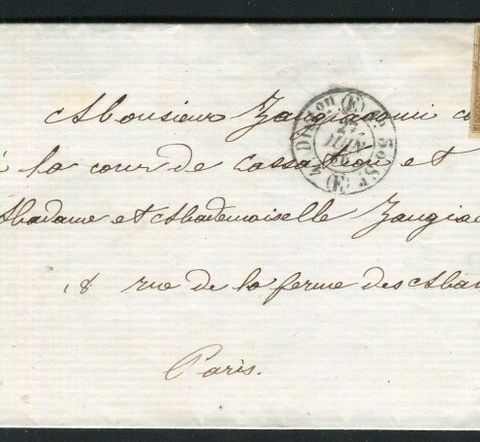 Monsieur Zangiacomi co
à la cour de Cassation et
Madame et Mademoiselle Zangia
18 rue de la ferme des Ma
Paris.
(E)
27
JUIN
(E)